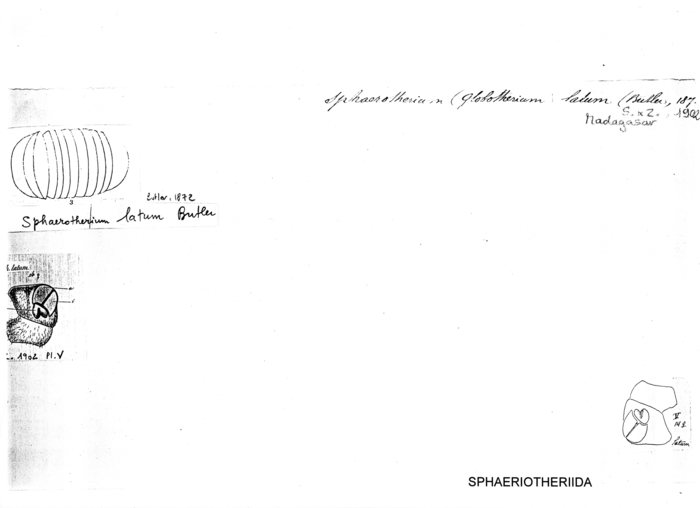 Sphaerotherium (Globotherium latum (Butler, 187.
S. x Z. 1902
Madagascar
3
Butler, 1872
Sphaerotherium latum Butler
latum.
1902 Pl. V
V
latum
SPHAERIOTHERIIDA